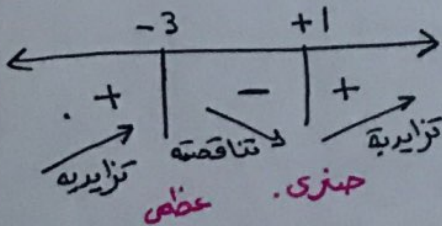 -3 +1
+ - +
تزايديه تناقصته تزايدية
عظمى صغرى.